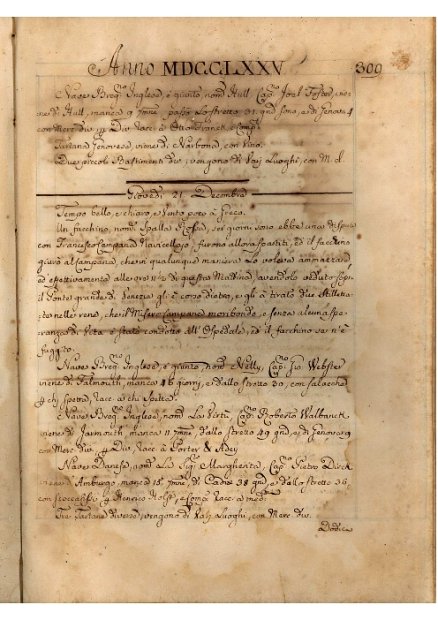 Anno MDCCLXXV 309
Nave Breg. Inglese, è giunto, nom. Hull, Cap. Joel Foster, viene
di Hull, manca 9 , passò lo stretto 31 gnd sono, e di Genova 4
con Merc. div. Racc. à Otto Franck, e Comp.
Tartana Genovese, viene di Narbona, con vino.
Due piccoli Bastimenti div. vengono da Varj Luoghi, con M. d.
Giovedì 21 Decembre
Tempo bello, e chiaro, e Vento poco à Greco.
Un facchino, nom. Spalla Rossa, sei giorni sono ebbe una disputa
con Francesco Campana Navicellajo, furono allora spartiti, ed il facchino
giurò al Campana, che in qualunque maniera lo voleva ammazzare,
ed effettivamente alle ore di questa Mattina avendolo veduto sopra
il Ponte grande di Venezia gli è corso dietro, e gli à tirato due stilletta-
te nelle rene, che il Misero Campana moribondo, e senza alcuna spe-
ranza di Vita è stato condotto all' Ospedale, ed il facchino se n'è
fuggito.
Nave Breg. Inglese, è giunto, nom. Nelly, Cap. Gio. Webster
viene di Falmouth, manca 46 giorni, e dallo stretto 30, con salacche
Racc. à chi spetta.
Nave Breg. Inglese, nom. La Virtù, Cap. Roberto Walbanck
viene di Jarmouth, manca 11 , dallo stretto 49 gnd, e di Genova 9
con Merc. div. Racc. à Porter & Adey
Nave Danese, nom. La Sig. Margherita, Cap. Pietro Dirck
viene d'Amburgo, manca 15 di Cadice 38 gnd, e dallo stretto 36,
con
Tre Tartane diverse, vengono da Varj Luoghi, con Merc. div.
Dodici